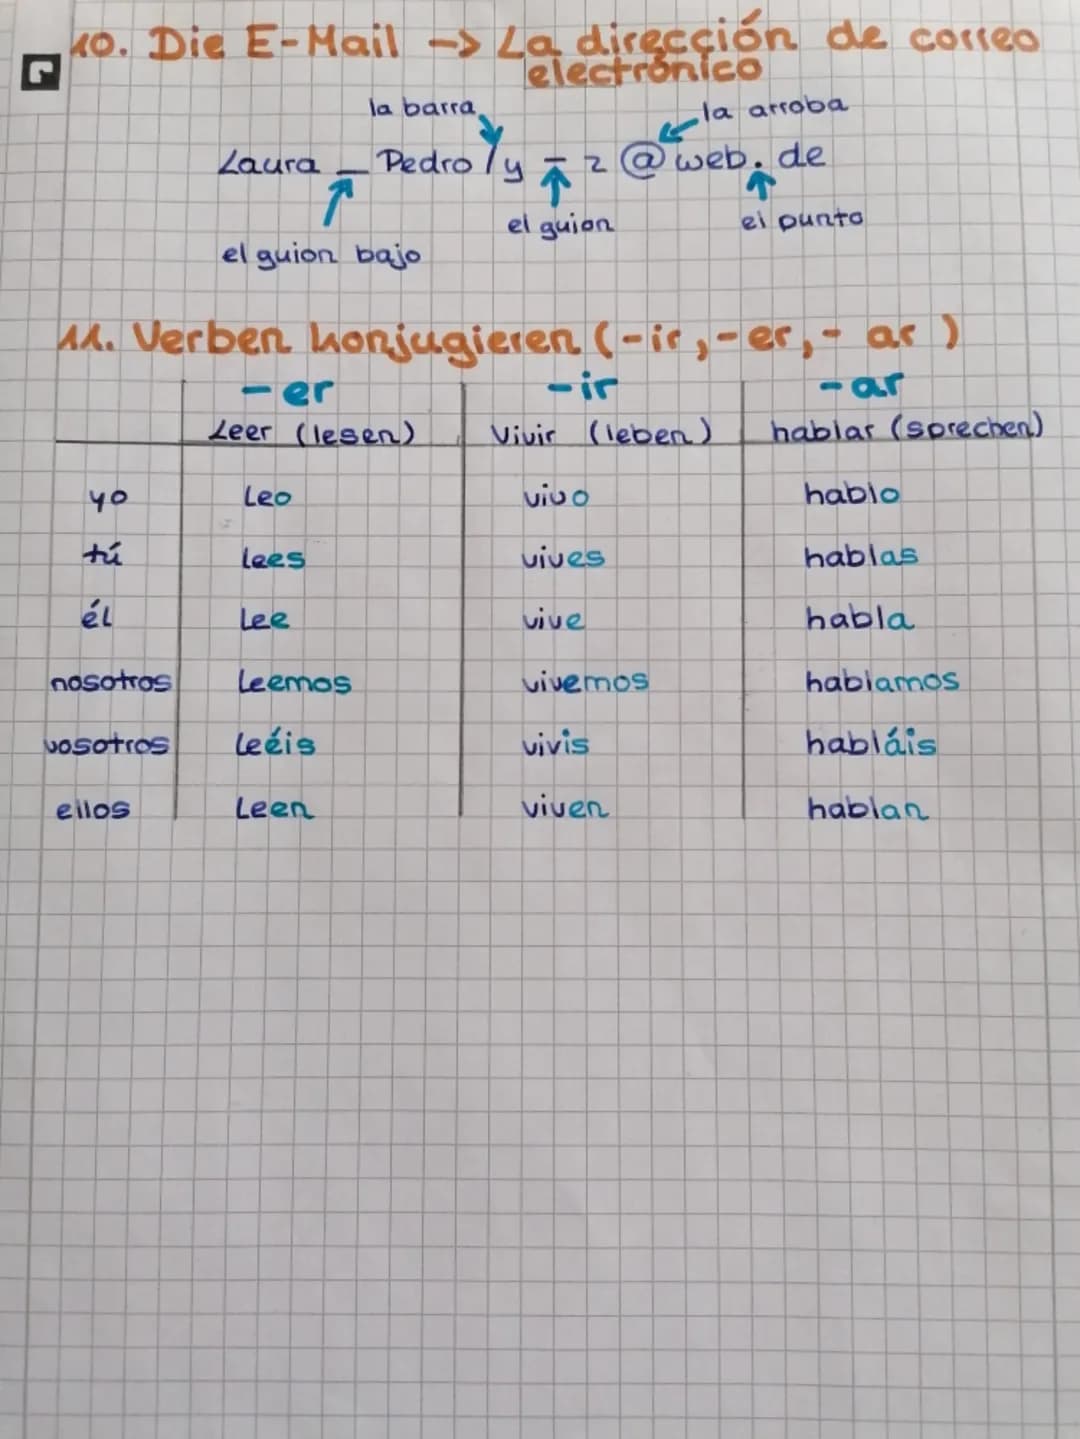 10. Die E-Mail -> La dirección de correo
electrónico
la barra
la arroba
Laura _ Pedro / y - z @ web. de
el guion
el punto
el guion bajo
11. Verben konjugieren (-ir, -er, - ar )
-er -ir -ar
Leer (lesen) Vivir (leben) hablar (sprechen)
yo Leo vivo hablo
tú Lees vives hablas
él Lee vive habla
nosotros Leemos vivemos hablamos
vosotros Leéis vivis habláis
ellos Leen viven hablan